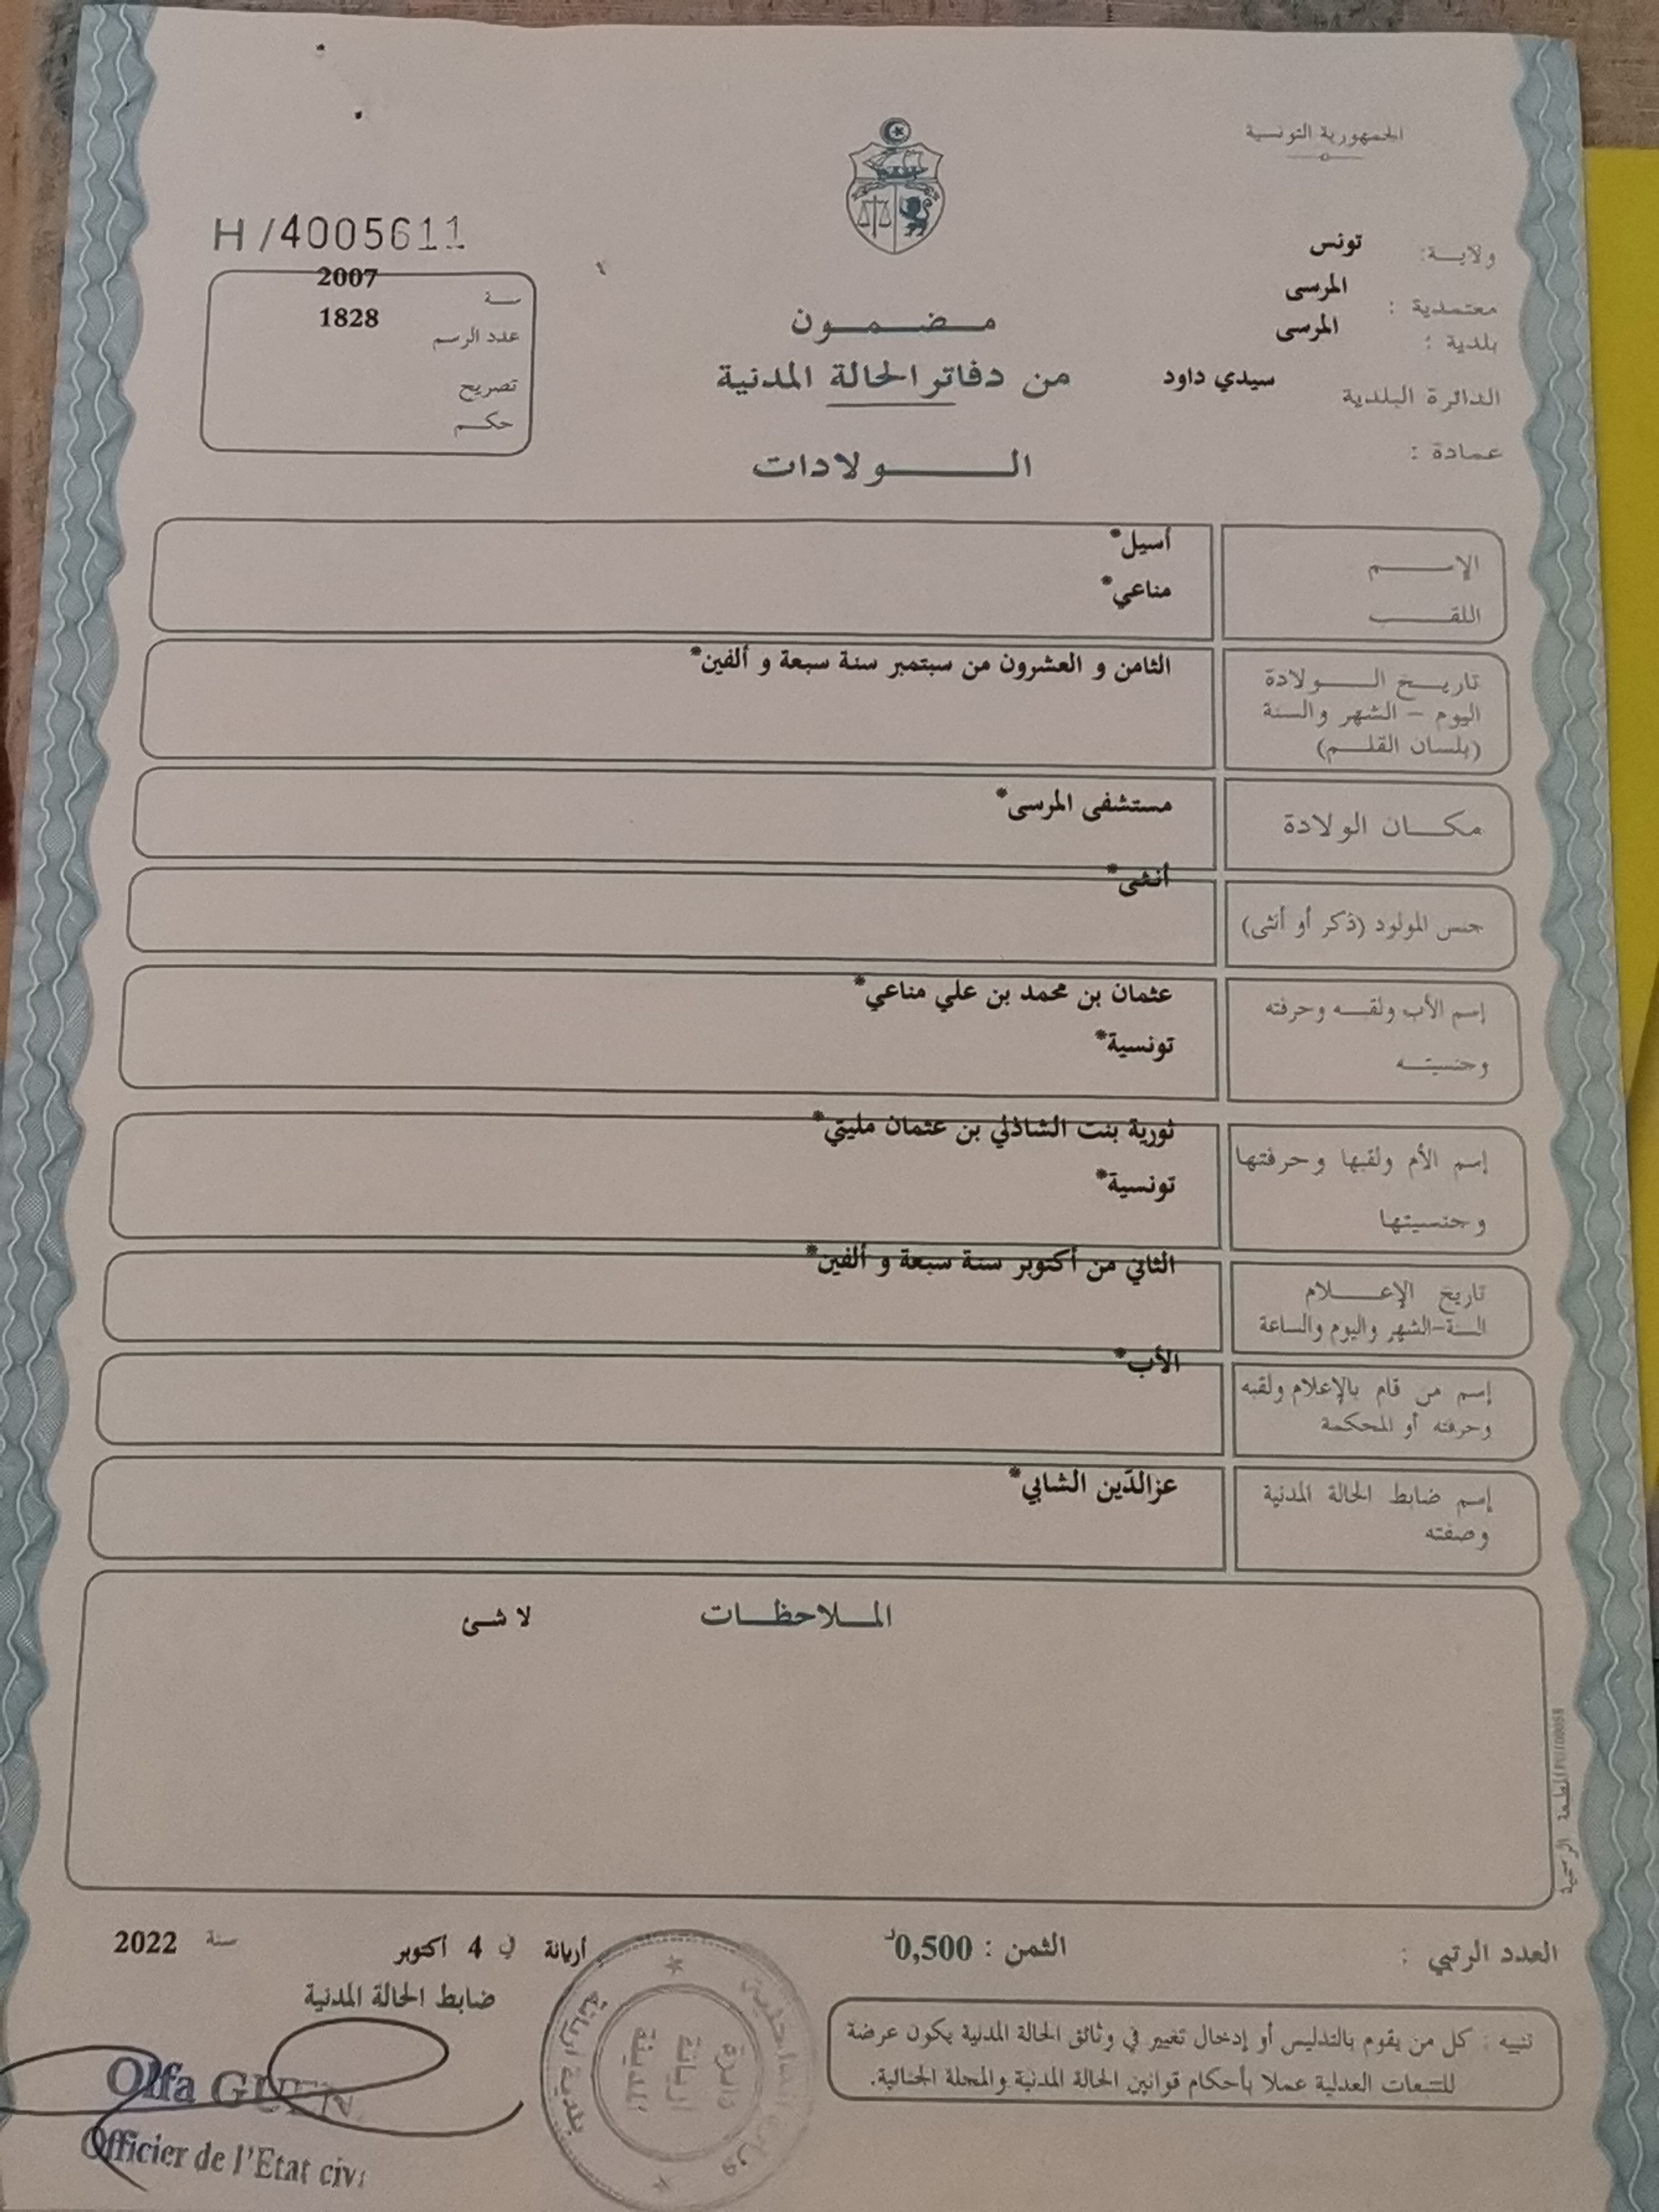 الجمهورية التونسية
ولاية: تونس
معتمدية : المرسى
بلدية : المرسى
الدائرة البلدية سيدي داود
عمادة :
H/4005611
سنة 2007
عدد الرسم 1828
تصريح
حكم
مضمون
من دفاتر الحالة المدنية
الولادات
الإسم أسيل*
اللقب مناعي*
تاريخ الولادة الثامن و العشرون من سبتمبر سنة سبعة و ألفين*
اليوم - الشهر والسنة
(بلسان القلم)
مكان الولادة مستشفى المرسى*
جنس المولود (ذكر أو أنثى) أنثى*
إسم الأب ولقبه وحرفته عثمان بن محمد بن علي مناعي*
وجنسيته تونسية*
إسم الأم ولقبها وحرفتها نورية بنت الشاذلي بن عثمان مليتي*
وجنسيتها تونسية*
تاريخ الإعلام الثاني من أكتوبر سنة سبعة و ألفين*
السنة-الشهر واليوم والساعة
إسم من قام بالإعلام ولقبه الأب*
وحرفته أو المحكمة
إسم ضابط الحالة المدنية عزالدّين الشابي*
وصفته
الملاحظات لا شئ
المطبعة الرسمية
العدد الرتبي :
الثمن : 0,500د
أريانة في 4 أكتوبر سنة 2022
ضابط الحالة المدنية
تنبيه : كل من يقوم بالتدليس أو إدخال تغيير في وثائق الحالة المدنية يكون عرضة
للتتبعات العدلية عملا بأحكام قوانين الحالة المدنية والمجلة الجنائية.
بلدية أريانة
دائرة
أريانة
المدينة
Olfa
Officier de l'Etat